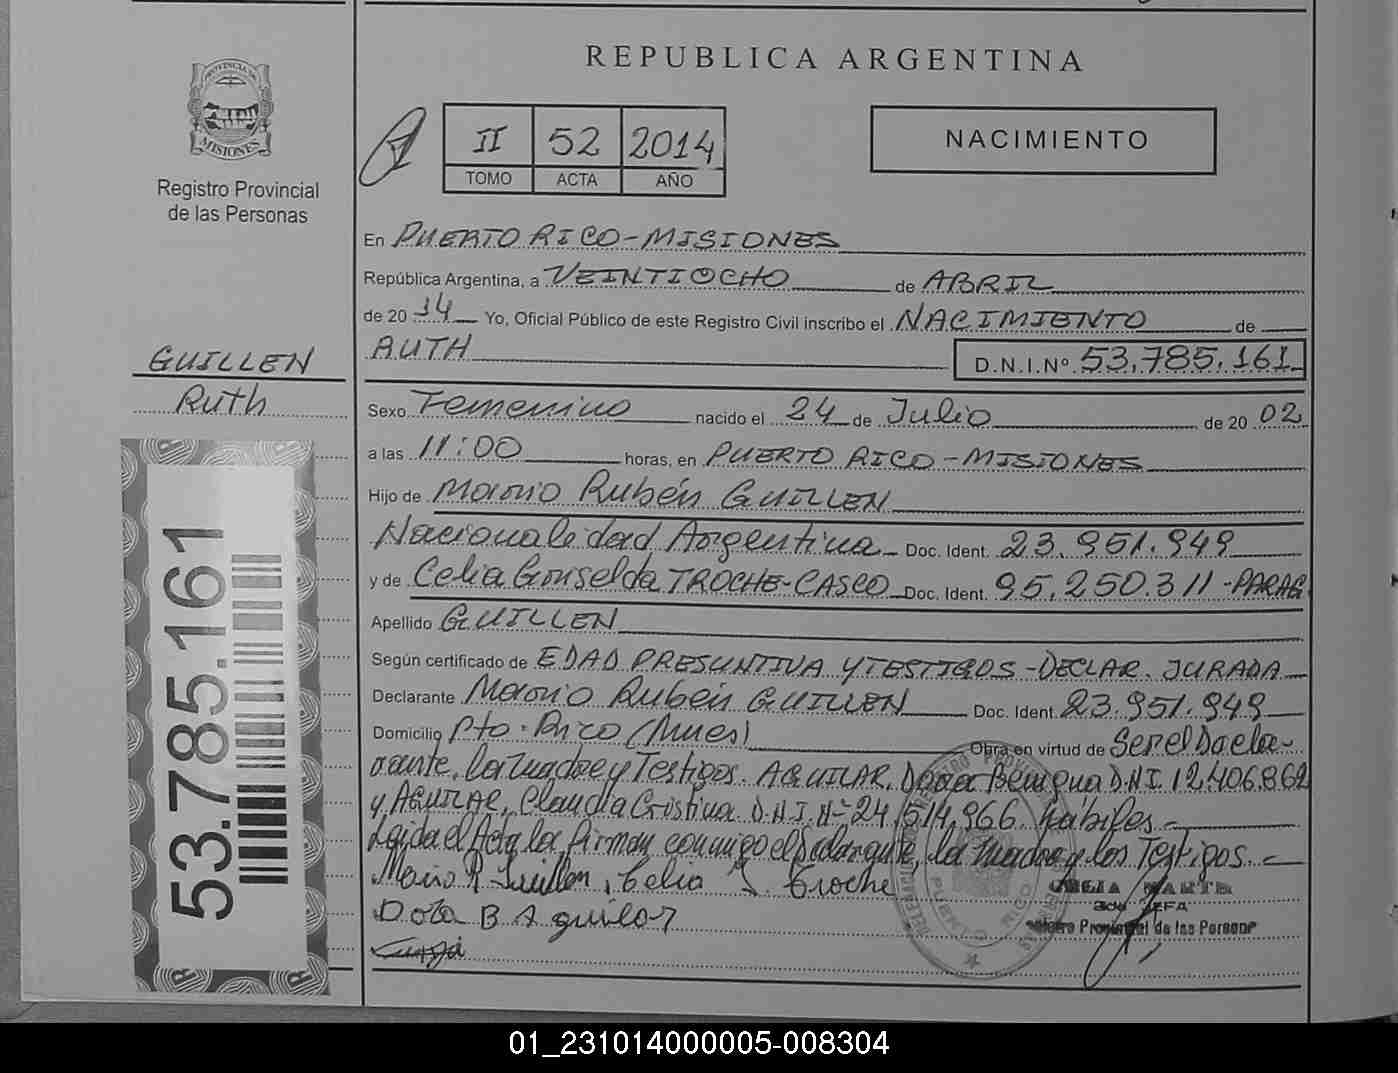 REPUBLICA ARGENTINA
PROVINCIA DE
MISIONES
Registro Provincial
de las Personas
II 52 2014
TOMO ACTA AÑO
NACIMIENTO
En PUERTO RICO-MISIONES
República Argentina, a VEINTIOCHO de ABRIL
de 20 14 Yo, Oficial Público de este Registro Civil inscribo el NACIMIENTO de
RUTH D.N.I.Nº 53.785.161
GUILLEN
Ruth
Sexo Femenino nacido el 24 de Julio de 20 02
a las 11:00 horas, en PUERTO RICO-MISIONES
Hijo de Mario Rubén GUILLEN
Nacionalidad Argentina Doc. Ident. 23.951.949
y de Celia Griselda TROCHE-CASCO Doc. Ident. 95.250.311-PARAG
Apellido GUILLEN
Según certificado de EDAD PRESUNTIVA Y TESTIGOS-DECLAR. JURADA
Declarante Mario Rubén GUILLEN Doc. Ident. 23.951.949
Domicilio Pto. Rico (Mnes) Obra en virtud de Ser el Decla-
rante, la madre y Testigos. AGUILAR, Dora Benigna D.N.I. 12.406.862
y AGUILAR, Claudia Cristina. D.N.I. Nº 24.614.966 hábiles.-
Leída el Acta la firman conmigo el Declarante, la madre y los Testigos.-
Mario R Guillen, Celia G. Troche
Dora B Aguilar
MARTA
JEFA
de las Person
PUERTO RICO
53.785.161
01_231014000005-008304